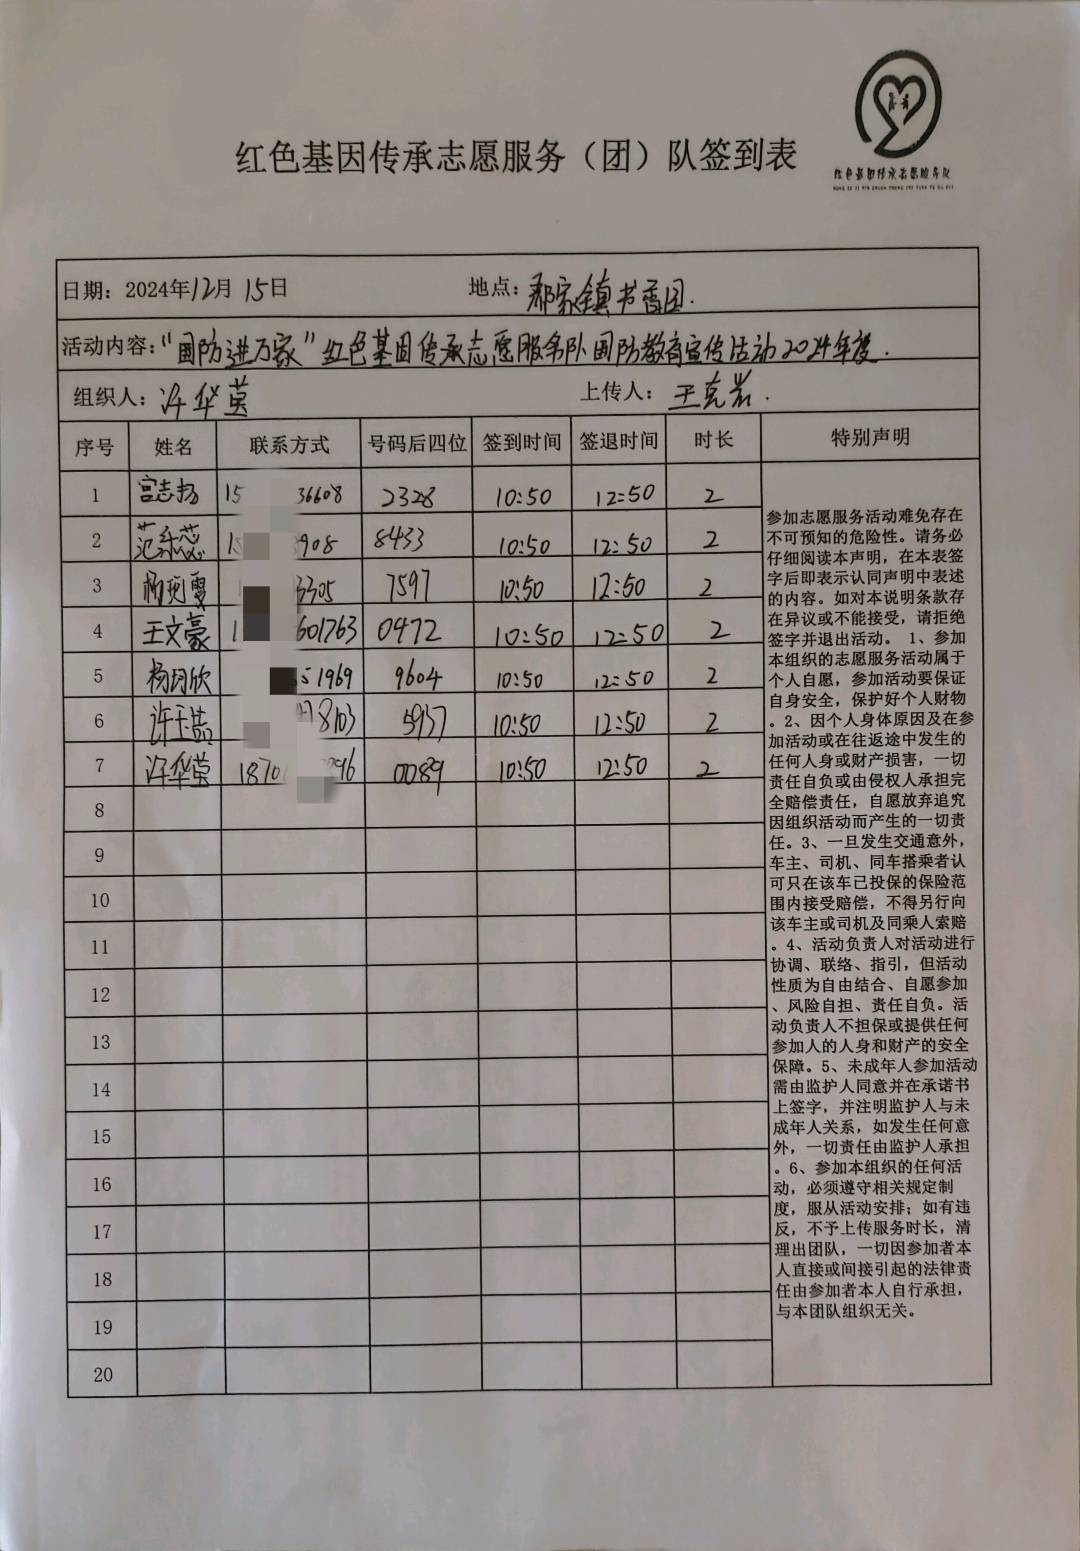 红色基因传承志愿服务队
红色基因传承志愿服务（团）队签到表
日期：2024年12月15日 地点：郝家镇书香园.
活动内容：“国防进万家”红色基因传承志愿服务队国防教育宣传活动2024年度.
组织人：许华英 上传人：王克岩.
序号 姓名 联系方式 号码后四位 签到时间 签退时间 时长 特别声明
1 宫志扬 15 36608 2328 10:50 12:50 2
2 范乐蕊 908 8433 10:50 12:50 2
3 3305 7597 10:50 12:50 2
4 王文豪 1 601763 0472 10:50 12:50 2
5 杨玥欣 1969 9604 10:50 12:50 2
6 许玉喆 8103 5937 10:50 12:50 2
7 许华英 1870 296 0089 10:50 12:50 2
8
9
10
11
12
13
14
15
16
17
18
19
20
参加志愿服务活动难免存在
不可预知的危险性。请务必
仔细阅读本声明，在本表签
字后即表示认同声明中表述
的内容。如对本说明条款存
在异议或不能接受，请拒绝
签字并退出活动。 1、参加
本组织的志愿服务活动属于
个人自愿，参加活动要保证
自身安全，保护好个人财物
。2、因个人身体原因及在参
加活动或在往返途中发生的
任何人身或财产损害，一切
责任自负或由侵权人承担完
全赔偿责任，自愿放弃追究
因组织活动而产生的一切责
任。3、一旦发生交通意外，
车主、司机、同车搭乘者认
可只在该车已投保的保险范
围内接受赔偿，不得另行向
该车主或司机及同乘人索赔
。4、活动负责人对活动进行
协调、联络、指引，但活动
性质为自由结合、自愿参加
、风险自担、责任自负。活
动负责人不担保或提供任何
参加人的人身和财产的安全
保障。5、未成年人参加活动
需由监护人同意并在承诺书
上签字，并注明监护人与未
成年人关系，如发生任何意
外，一切责任由监护人承担
。6、参加本组织的任何活
动，必须遵守相关规定制
度，服从活动安排；如有违
反，不予上传服务时长，清
理出团队，一切因参加者本
人直接或间接引起的法律责
任由参加者本人自行承担，
与本团队组织无关。